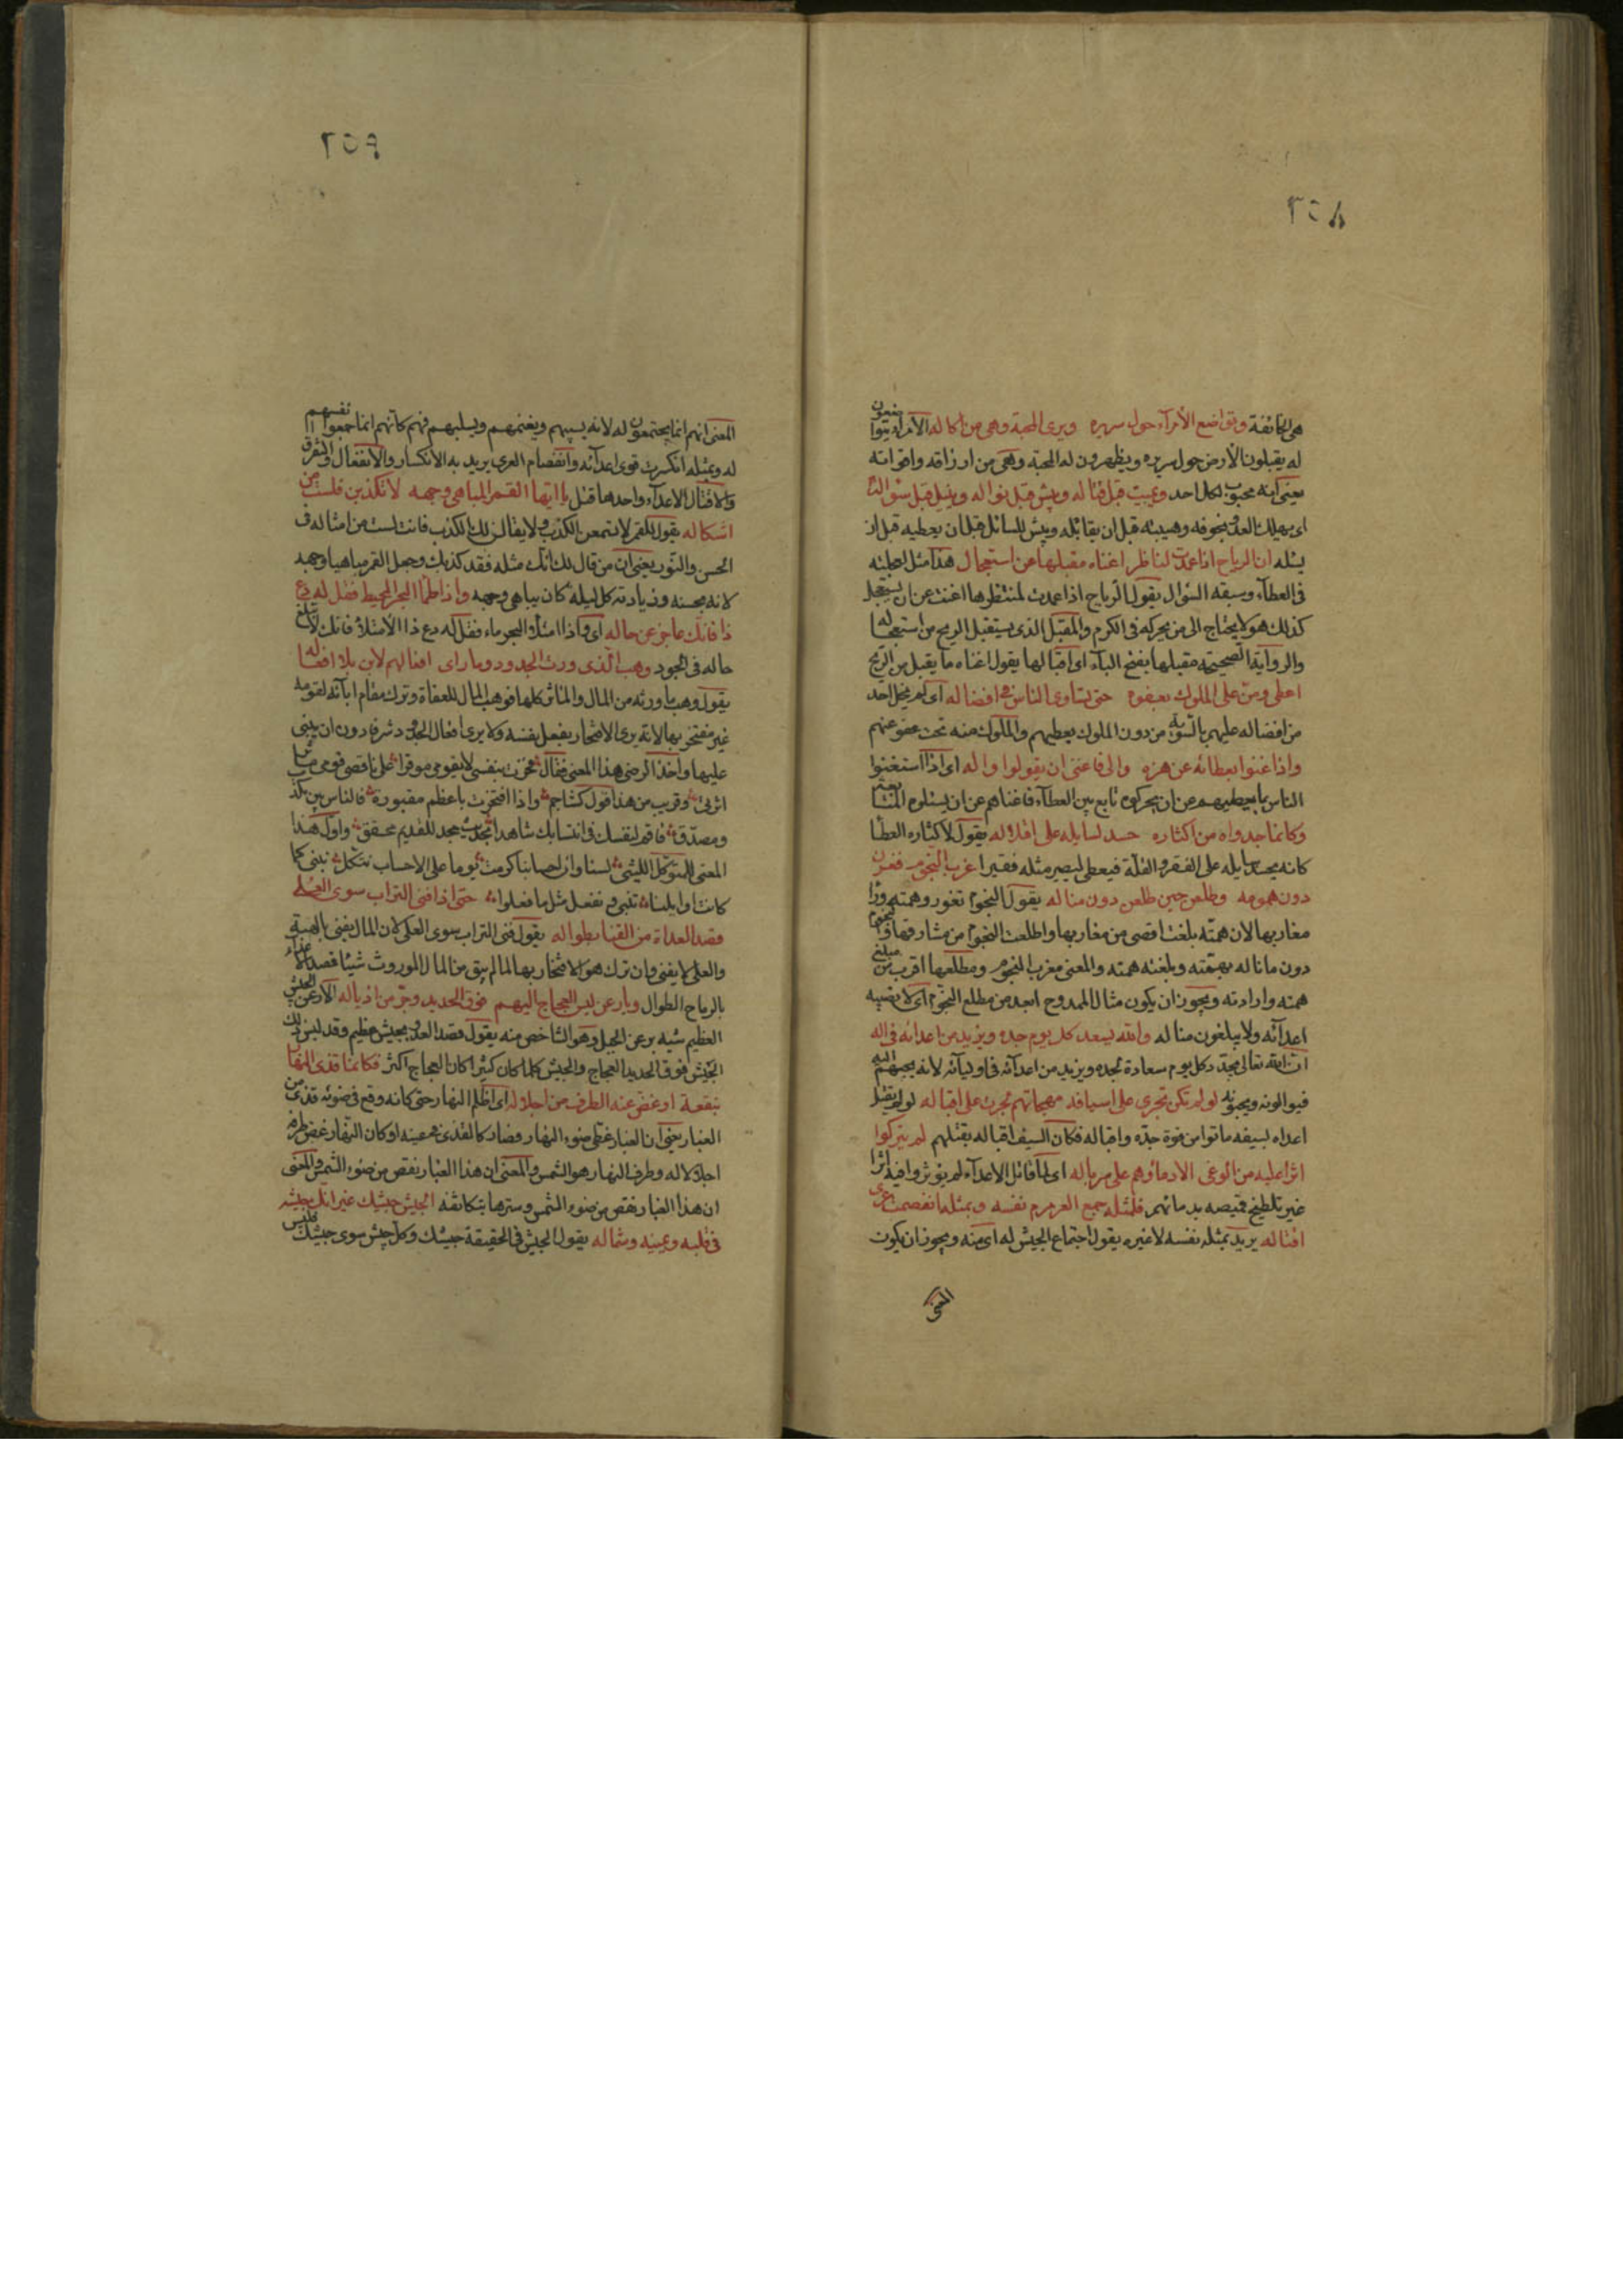 ٢٥٨
هى الخائفة وتواضع الأمرآء حول سريره ويرى المحبة وهى من آكاله الأمرآء يتواضعون
له يقبلون الأرض حول سريره ويظهرون له المحبة وهى من ارزاقه واقواته
يعنى انه محبوب لكل احد ويميت قبل قتاله ويبش قبل نواله وينيل قبل سؤاله
اى يهلك العدو بخوفه وهيبته قبل ان يقاتله ويبش للسائل قبل ان يعطيه قبل ان
يسئله ان الرياح اذا عمدن لناظر اغناه مقبلها عن استعجال هذا مثل لعجلته
فى العطآء وسبقه السؤال يقول الرياح اذا عمدت لمنتظرها اغنت عن ان يستعجل
كذلك هو لا يحتاج الى من يحركه فى الكرم والمقبل الذى يستقبل الريح من استعجاله
والرواية الصحيحة مقبلها بفتح البآء اى اقبالها يقول اغناه ما يقبل من الريح
اعطى ومن على الملوك بعفوه حتى تساوى الناس فى افضاله اى لم يخل احد
من افضاله عليهم بالتسوية من دون الملوك يعطيهم والملوك منه تحت عفو عنهم
واذا غنوا بعطائه عن هزه والى فاغنى ان يقولوا واله اى اذا استغنوا
الناس بما يعطيهم عن ان يحركوه تابع بين العطآء فاغناهم عن ان يسئلوه المتابعة
وكانما جدواه من اكثاره حسد لسايله على اقلاله يقول لاكثاره العطا
كانه يحسد سايله على الفقر والقلة فيعطى ليصير مثله فقيرا غرب النجوم فغرن
دون همومه وطلعن حين طلعن دون مناله يقول النجوم تغور وهمته ورا
مغاربها لان همته بلغت اقصى من مغاربها واطلعت النجوم من مشارقها والنجوم
دون ما ناله بهمته وبلغته همته والمعنى مغرب النجوم ومطلعها اقرب من مبلغ
همته وارادته ويجوز ان يكون مثال الممدوح ابعد من مطلع النجوم اى لا يصيبه
اعدآئه ولا يبلغون مناله والله يسعد كل يوم جده ويزيد من اعدائه فى اله
ان الله تعالى يجدد كل يوم سعادة لجده ويزيد من اعدآئه فى اوليآئه لانه يحبهم اليه
فيوالونه ويحبونه لو لم تكن تجرى على اسيافه مهجاتهم لجرت على اقباله لو لم يقتل
اعداه بسيفه ماتوا من قوة جده واقباله فكان السيف اقباله يقتلهم لم يتركوا
اثرا عليه من الوغى الا دماؤهم على سرباله اى لما قاتل الاعدآء لم يؤثروا فيه اثرا
غير تلطيخ قميصه بدمائهم فلمثله جمع العرمرم نفسه وبمثله انفصمت عرى
اقتاله يريد بمثله نفسه لا غيره يقول اجتماع الجيش له اى منه ويجوز ان يكون
المعنى
٢٥٩
المعنى انهم انما يجتمعون له لانه يسبيهم ويغنمهم ويسلبهم فهم كانهم انما جمعوا انفسهم
له وبمثله انكسرت قوى اعدآئه وانفصام العرى يريد به الانكسار والانفعال والتفرق
والاقتال الاعدآء واحدها قتل يا ايها القمر المباهى وجهه لا تكذبن فلست من
اشكاله يقول للقمر لا تسمعن الكذب ولا يقال لك الكذب فانت لست من امثاله فى
الحسن والنور يعنى ان من قال لك انك مثله فقد كذبك وجعل القمر مباهيا وجهه
لانه بحسنه وزيادته كل ليلة كان يباهى وجهه واذا طما البحر المحيط فقل له دع
ذا فانك عاجز عن حاله اى واذا امتلأ والبحر ماء فقل له دع ذا الامتلأ فانك لا تبلغ
حاله فى الجود وهب الذى ورث الجدود وما راى افعالهم لابن بلا افعاله
يقول وهب ما ورثه من المال والمآثر كلها فوهب المال للعفاة وترك مقام ابآئه لقومه
غير مفتخر بها لانه يرى الافتخار بفعل نفسه ولا يرى افعال الجدود شرفا دون ان يبنى
عليها واخذ الرضى هذا المعنى فقال فخرت بنفسى لا بقومى موقرا على ناقصى قومى مناقب
اثرتى وقريب من هذا قول كشاجم واذا افتخرت باعظم مقبورة فالناس بين مكذب
ومصدق فاقم لنفسك فى انتسابك شاهدا بحديث مجد للقديم محقق واول هذا
المعنى للمتوكل الليثى لسنا وان احسابنا كرمت يوما على الاحساب نتكل نبنى كما
كانت اوايلنا تبنى ونفعل مثل ما فعلوا حتى اذا فنى التراث سوى العلى
قصد العداة من القنا بطواله يقول فنى التراث سوى العلى لان المال يفنى بالهبة
والعلى لا يفنى وان ترك هو الافتخار بها لما لم يبق من المال الموروث شيئا قصد الاعداء
بالرماح الطوال وبارعن لبس العجاج اليهم فوق الحديد وجر من اذياله الارعن الجيش
العظيم شبه برعن الجبل وهو الشاخص منه يقول قصد العدو بجيش عظيم وقد لبس ذلك
الجيش فوق الحديد العجاج والجيش كلما كان كثيرا كان العجاج اكثر فكانما قذى النهار
بنقعه او غض عنه الطرف من اجلاله اى اظلم النهار حتى كانه وقع فى ضوئه قذى من
الغبار يعنى ان الغبار غطى ضوء النهار وصار كالقذى فى عينه او كان النهار غض طرفه
اجلالا له وطرف النهار هو الشمس والمعنى ان هذا الغبار نقص من ضوء الشمس والمعنى
ان هذا الغبار نقص من ضوء الشمس وسترها بتكاثفه الجيش جيشك غير انك جيشه
فى قلبه ويمينه وشماله يقول الجيش فى الحقيقة جيشك وكل جيش سوى جيشك فليس